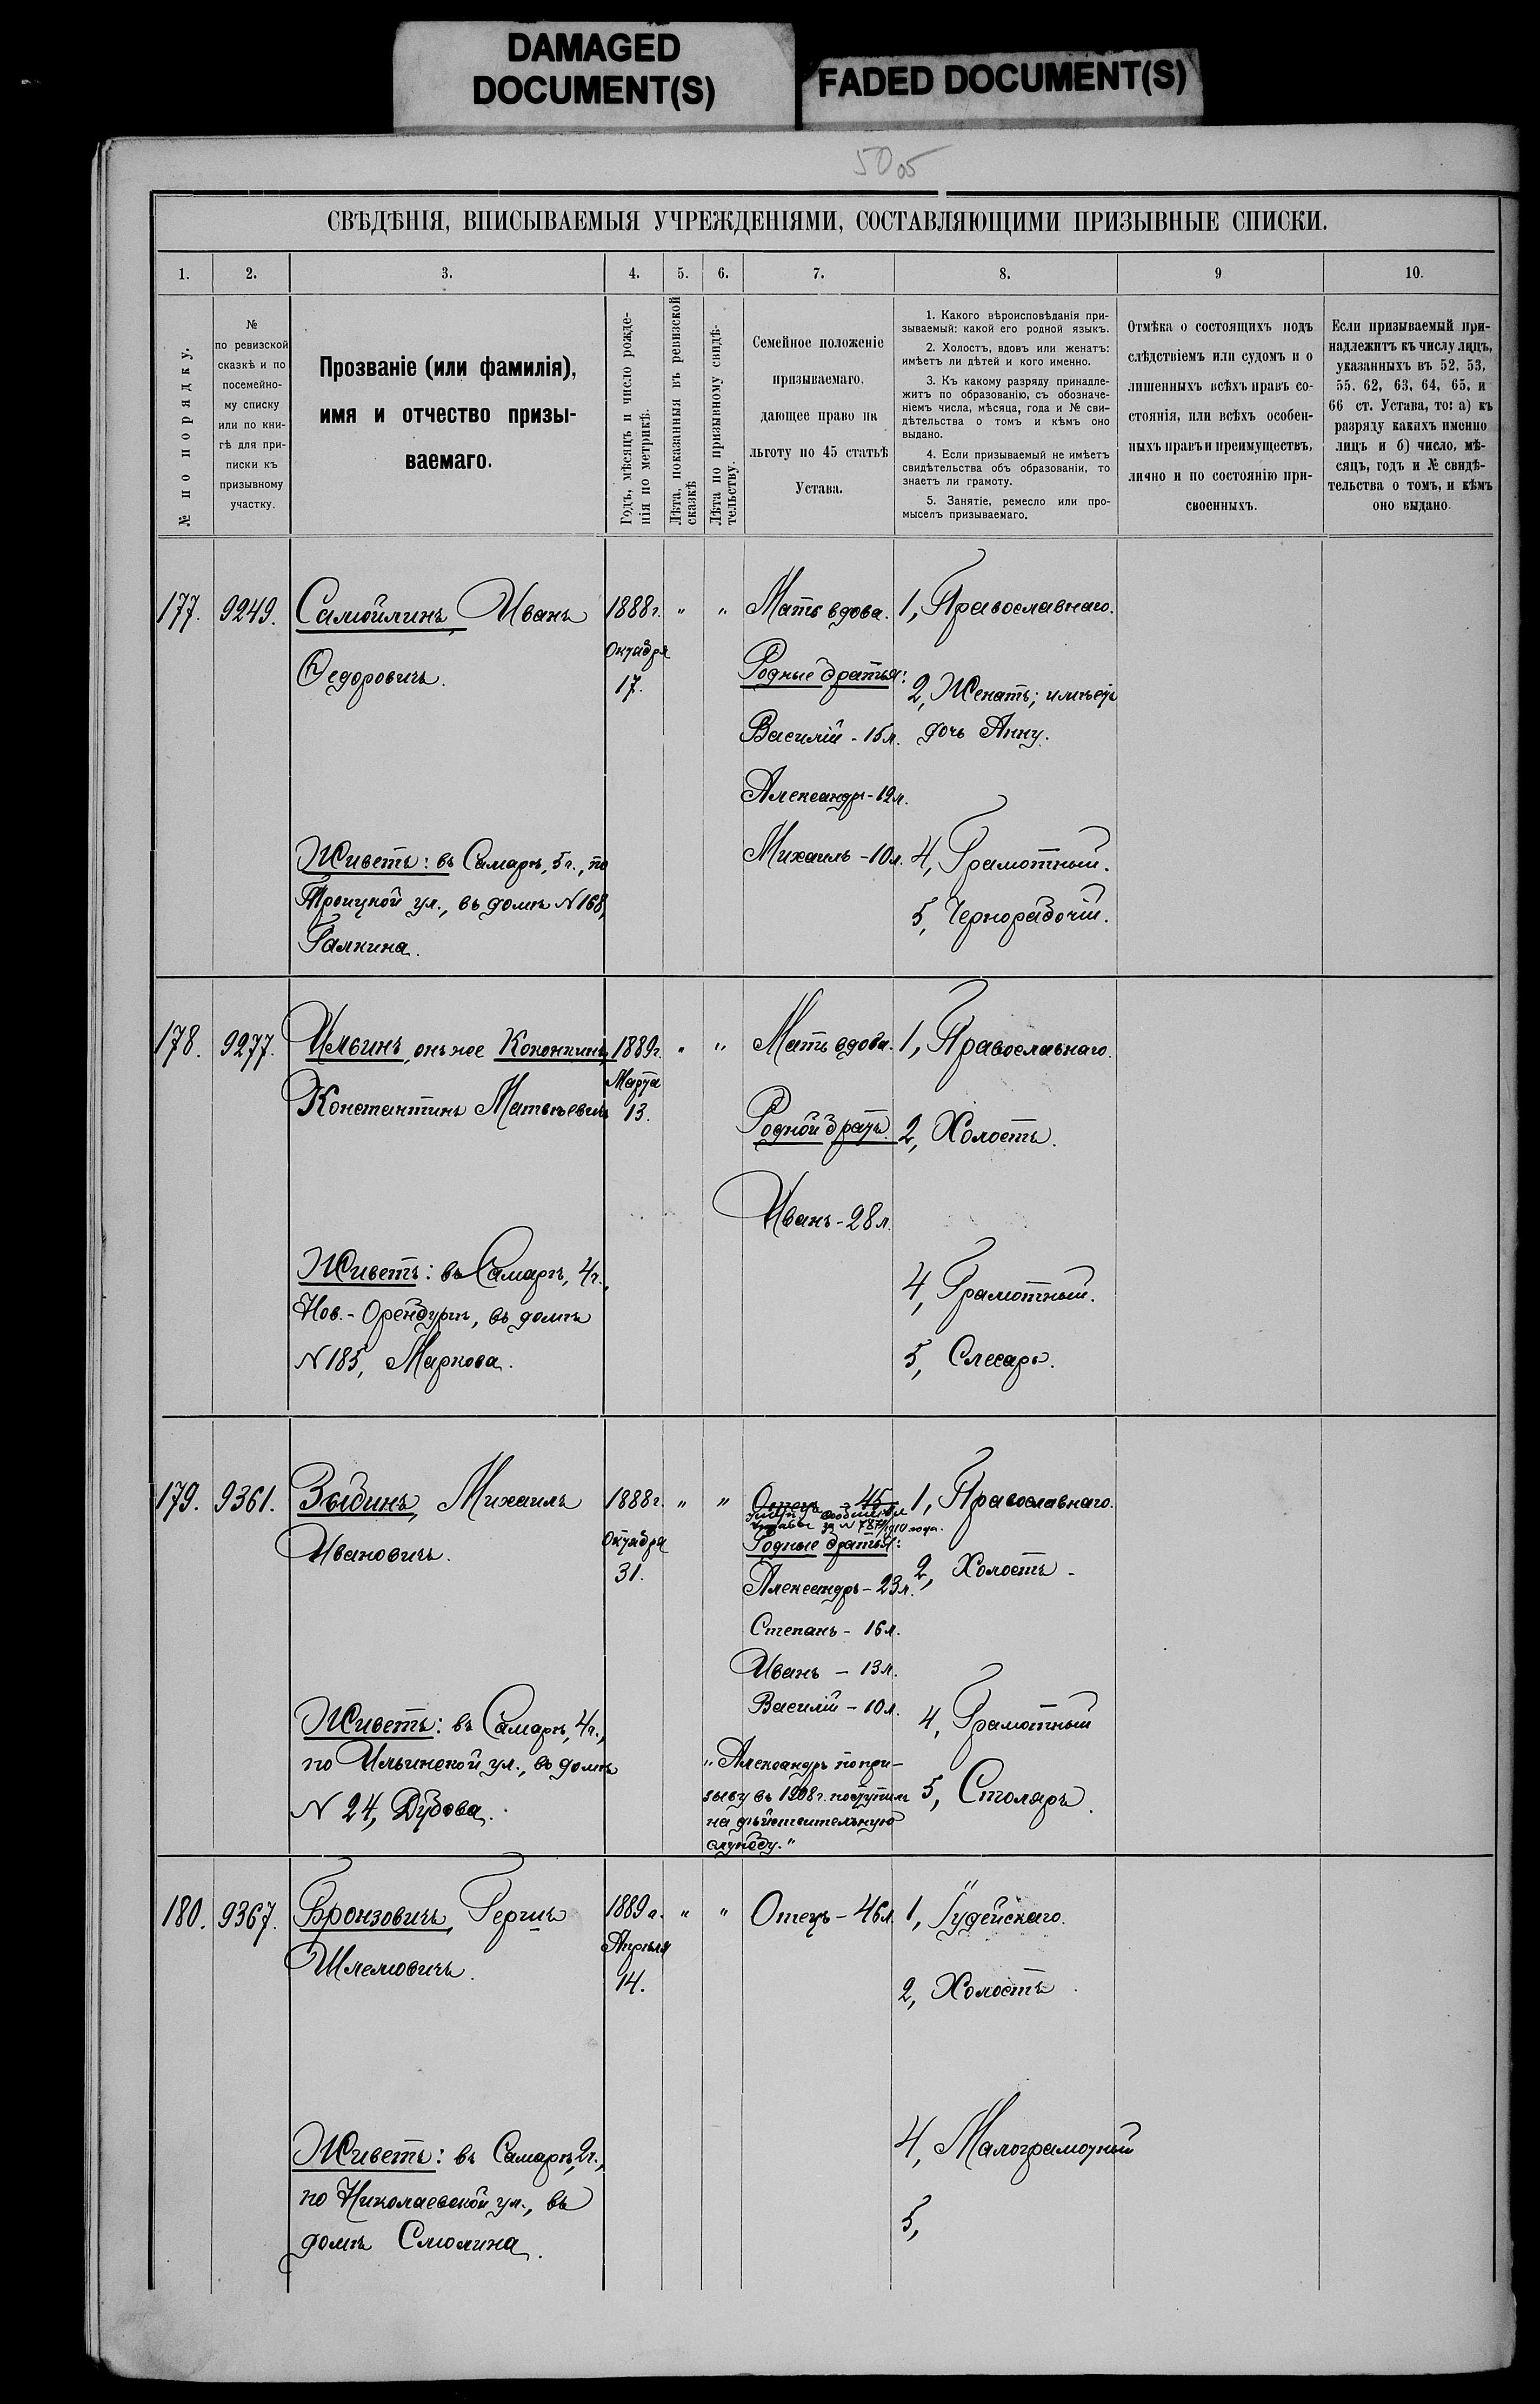 DAMAGED
DOCUMENT(S)
FADED DOCUMENT(S)
5005
СВѢДѢНІЯ, ВПИСЫВАЕМЫЯ УЧРЕЖДЕНІЯМИ, СОСТАВЛЯЮЩИМИ ПРИЗЫВНЫЕ СПИСКИ.
1.
2.
3.
4.
5.
6.
7.
8.
9
10.
№ по порядку.
№
по ревизской
сказкѣ и по
посемейно-
му списку
или по кни-
гѣ для при-
писки къ
призывному
участку.
Прозваніе (или фамилія),
имя и отчество призы-
ваемаго.
Годъ, мѣсяцъ и число рожде-
нія по метрикѣ.
Лѣта, показанныя въ ревизской
сказкѣ
Лѣта по призывному свидѣ-
тельству.
Семейное положеніе
призываемаго,
дающее право на
льготу по 45 статьѣ
Устава.
1. Какого вѣроисповѣданія при-
зываемый: какой его родной языкъ.
2. Холостъ, вдовъ или женатъ:
имѣетъ ли дѣтей и кого именно.
3. Къ какому разряду принадле-
житъ по образованію, съ обозначе-
ніемъ числа, мѣсяца, года и № сви-
дѣтельства о томъ и кѣмъ оно
выдано.
4. Если призываемый не имѣетъ
свидѣтельства объ образованіи, то
знаетъ ли грамоту.
5. Занятіе, ремесло или про-
мыселъ призываемаго.
Отмѣка о состоящихъ подъ
слѣдствіемъ или судомъ и о
лишенныхъ всѣхъ правъ со-
стоянія, или всѣхъ особен-
ныхъ правъ и преимуществъ,
лично и по состоянію при-
своенныхъ.
Если призываемый при-
надлежитъ къ числу лицъ,
указанныхъ въ 52, 53,
55. 62, 63, 64, 65, и
66 ст. Устава, то: а) къ
разряду какихъ именно
лицъ и б) число, мѣ-
сяцъ, годъ и № свидѣ-
тельства о томъ, и кѣмъ
оно выдано.
177.
9249.
Самойлинъ, Иванъ
Ѳедоровичъ.
Живетъ: въ Самарѣ, 5ч., по
Троицкой ул., въ домѣ N168,
Галкина.
1888г.
Октября
17.
"
"
Мать вдова.
Родные братья:
Василій - 15л.
Александръ - 12л.
Михаилъ - 10л.
1, Православнаго.
2, Женатъ; имѣетъ
дочь Анну.
4, Грамотный.
5, Чернорабочій.
178.
9277.
Ильинъ, онъ же Кононкинъ,
Константинъ Матвѣевичъ
Живетъ: въ Самарѣ, 4ч.,
Нов.-Оренбургѣ, въ домѣ
N185, Маркова.
1889г.
Марта
13.
"
"
Мать вдова.
Родной братъ
Иванъ - 28л.
1, Православнаго.
2, Холостъ.
4, Грамотный.
5, Слесарь.
179.
9361.
Зыбинъ, Михаилъ
Ивановичъ.
Живетъ: въ Самарѣ, 4ч.,
по Ильинской ул., въ домѣ
N 24, Дубова.
1888г.
Октября
31.
"
"
Отецъ - 45
за N 7871/1910 года.
Родные братья:
Александръ - 23л.
Степанъ - 16л.
Иванъ - 13л.
Василій - 10л.
"Александръ по при-
зыву въ 1908г. поступилъ
на дѣйствительную
службу."
1, Православнаго.
2, Холостъ.
4, Грамотный
5, Столяръ.
180.
9367.
Бронзовичъ, Гершъ
Шлемовичъ.
Живетъ: въ Самарѣ, 2ч.,
по Николаевской ул., въ
домѣ Смолина.
1889г.
Апрѣля
14.
"
"
Отецъ - 46л.
1, Іудейскаго.
2, Холостъ.
4, Малограмотный
5,